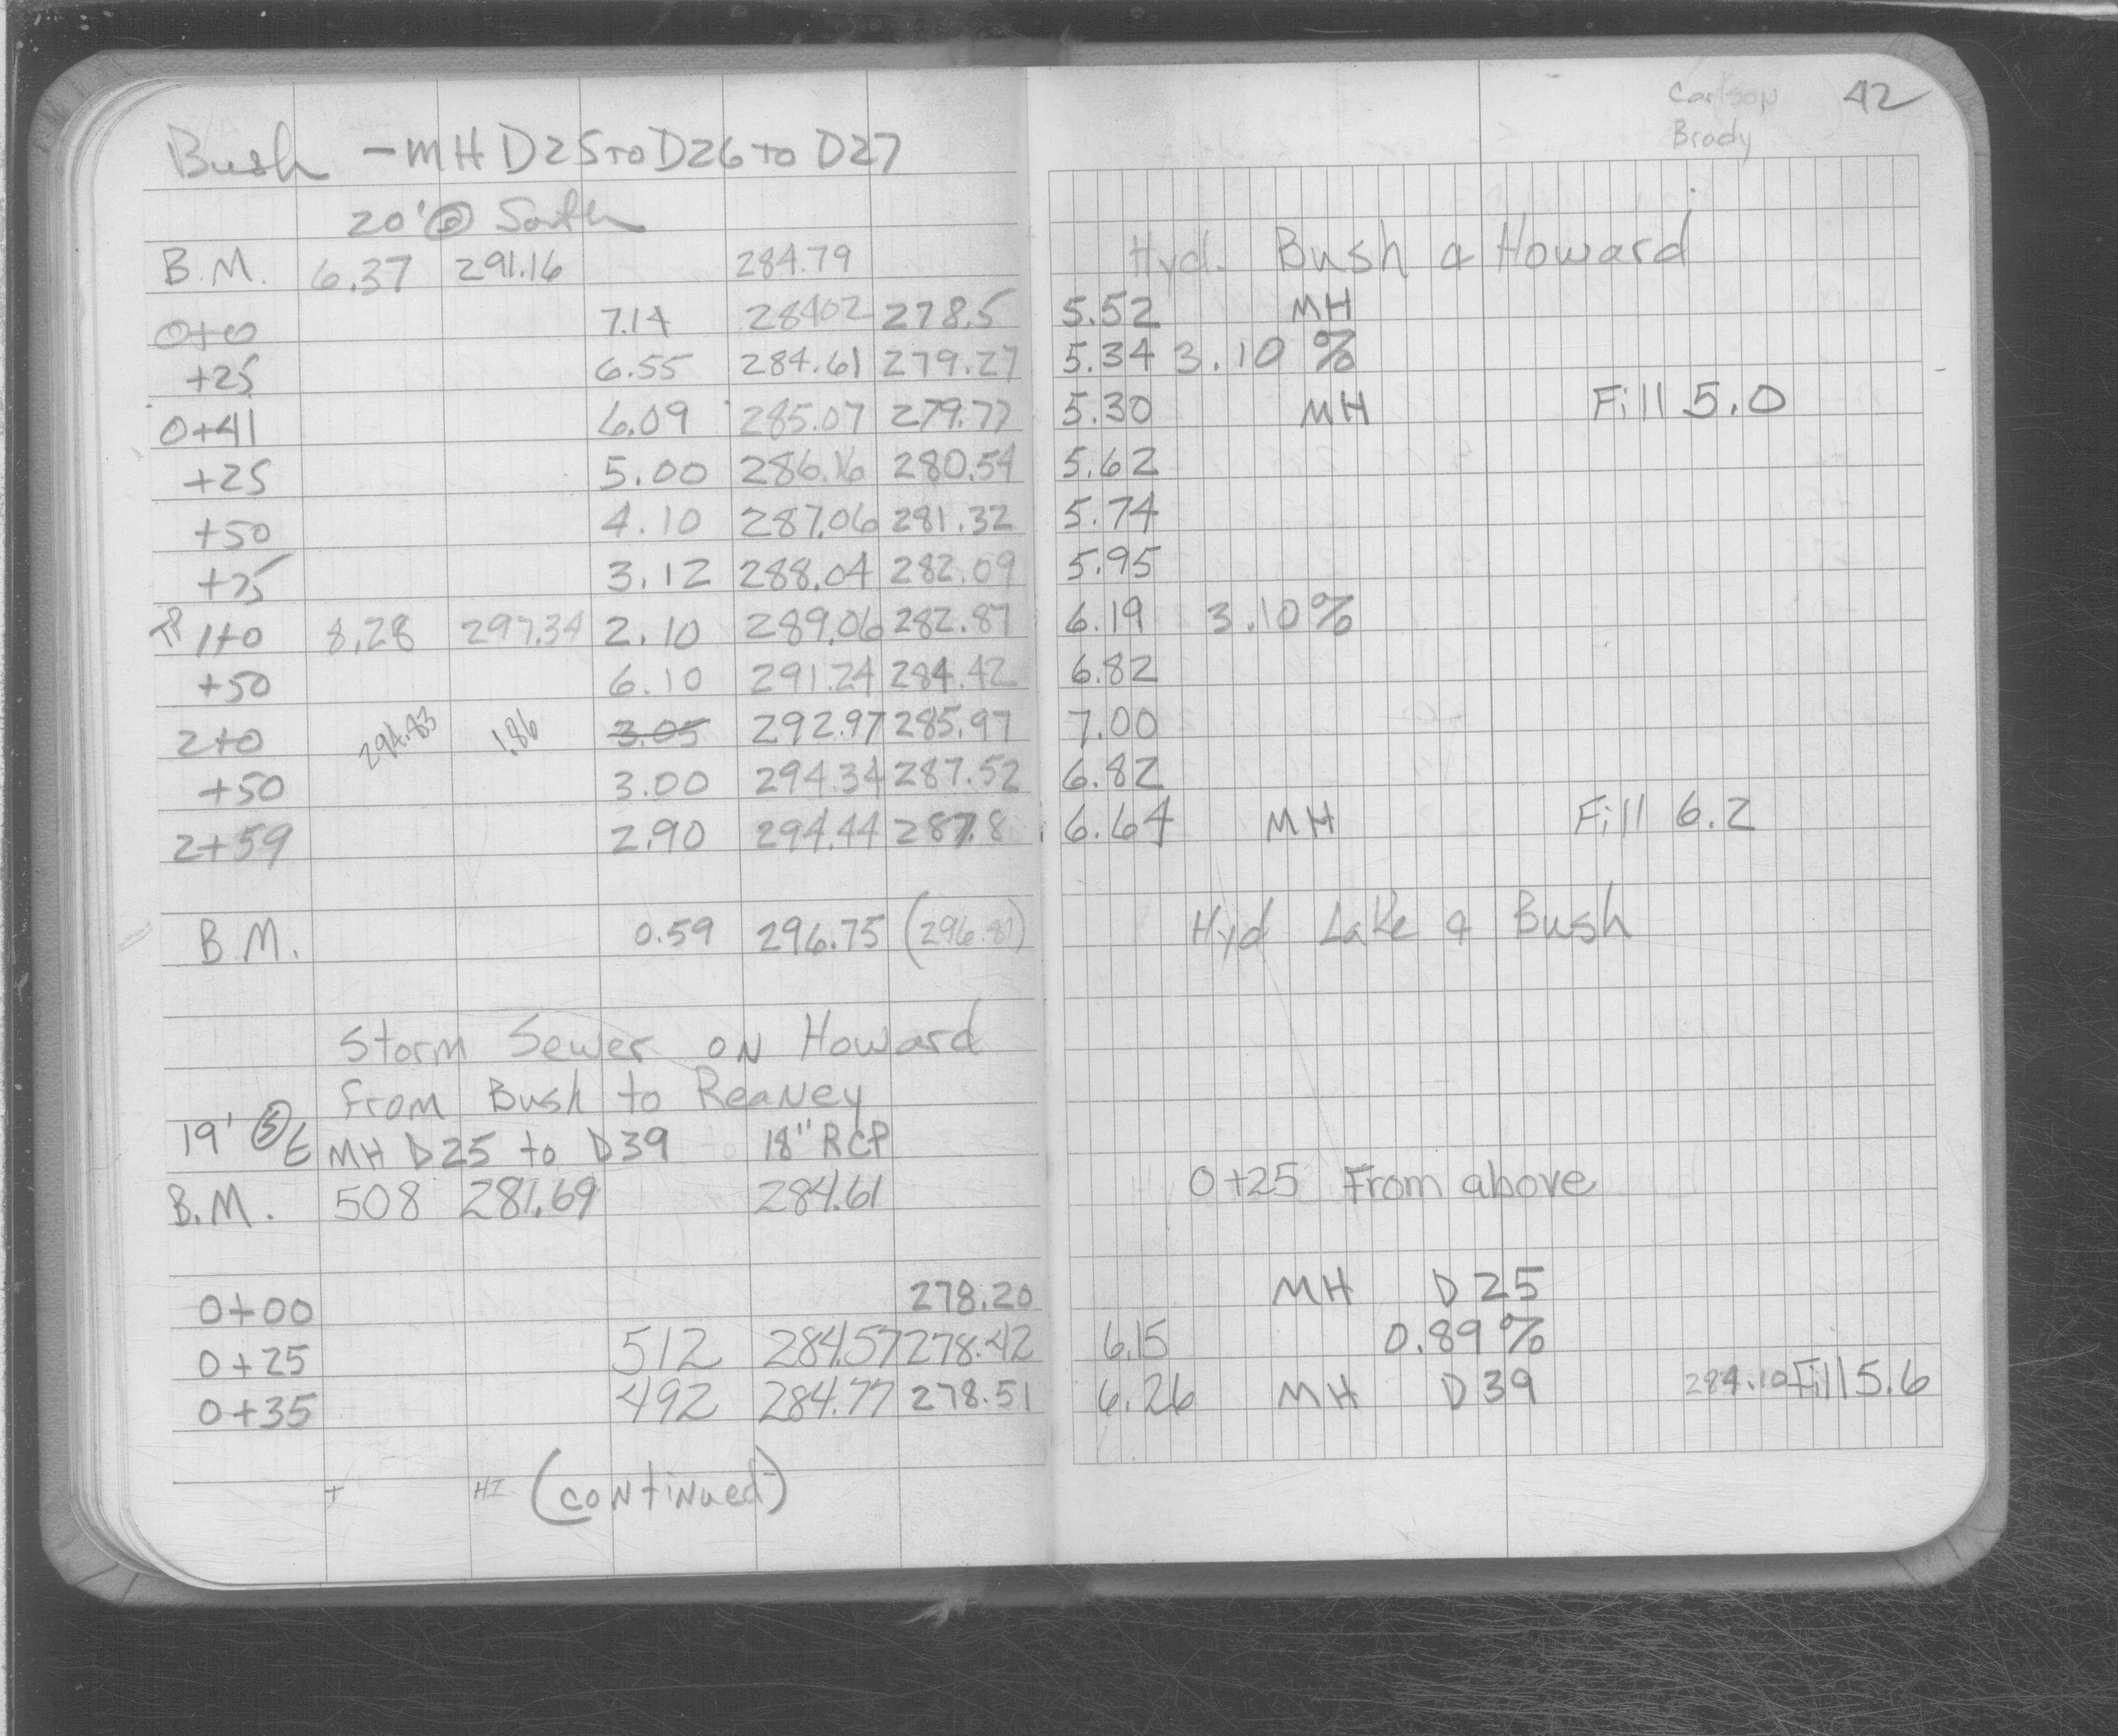 Carlson 42
Brady
Bush - MH D25 to D26 to D27
20' @ South
B.M. 6.37 291.16 284.79 Hyd. Bush & Howard
0+0 7.14 284.02 278.5 5.52 MH
+25 6.55 284.61 279.27 5.34 3.10 %
0+41 6.09 285.07 279.77 5.30 MH Fill 5.0
+25 5.00 286.16 280.54 5.62
+50 4.10 287.06 281.32 5.74
+75 3.12 288.04 282.09 5.95
TP 1+0 8.28 297.34 2.10 289.06 282.87 6.19 3.10%
+50 6.10 291.24 284.42 6.82
2+0 294.83 1.86 3.05 292.97 285.97 7.00
+50 3.00 294.34 287.52 6.82
2+59 2.90 294.44 287.8 6.64 MH Fill 6.2
B.M. 0.59 296.75 (296.81) Hyd Lake & Bush
Storm Sewer on Howard
From Bush to Reaney
19' @ E MH D25 to D39 18" RCP
B.M. 508 281.69 284.61 0+25 From above
0+00 278.20 MH D25
0+25 512 284.57 278.42 6.15 0.89%
0+35 492 284.77 278.51 6.26 MH D39 284.10 Fill 5.6
+ HI (continued)